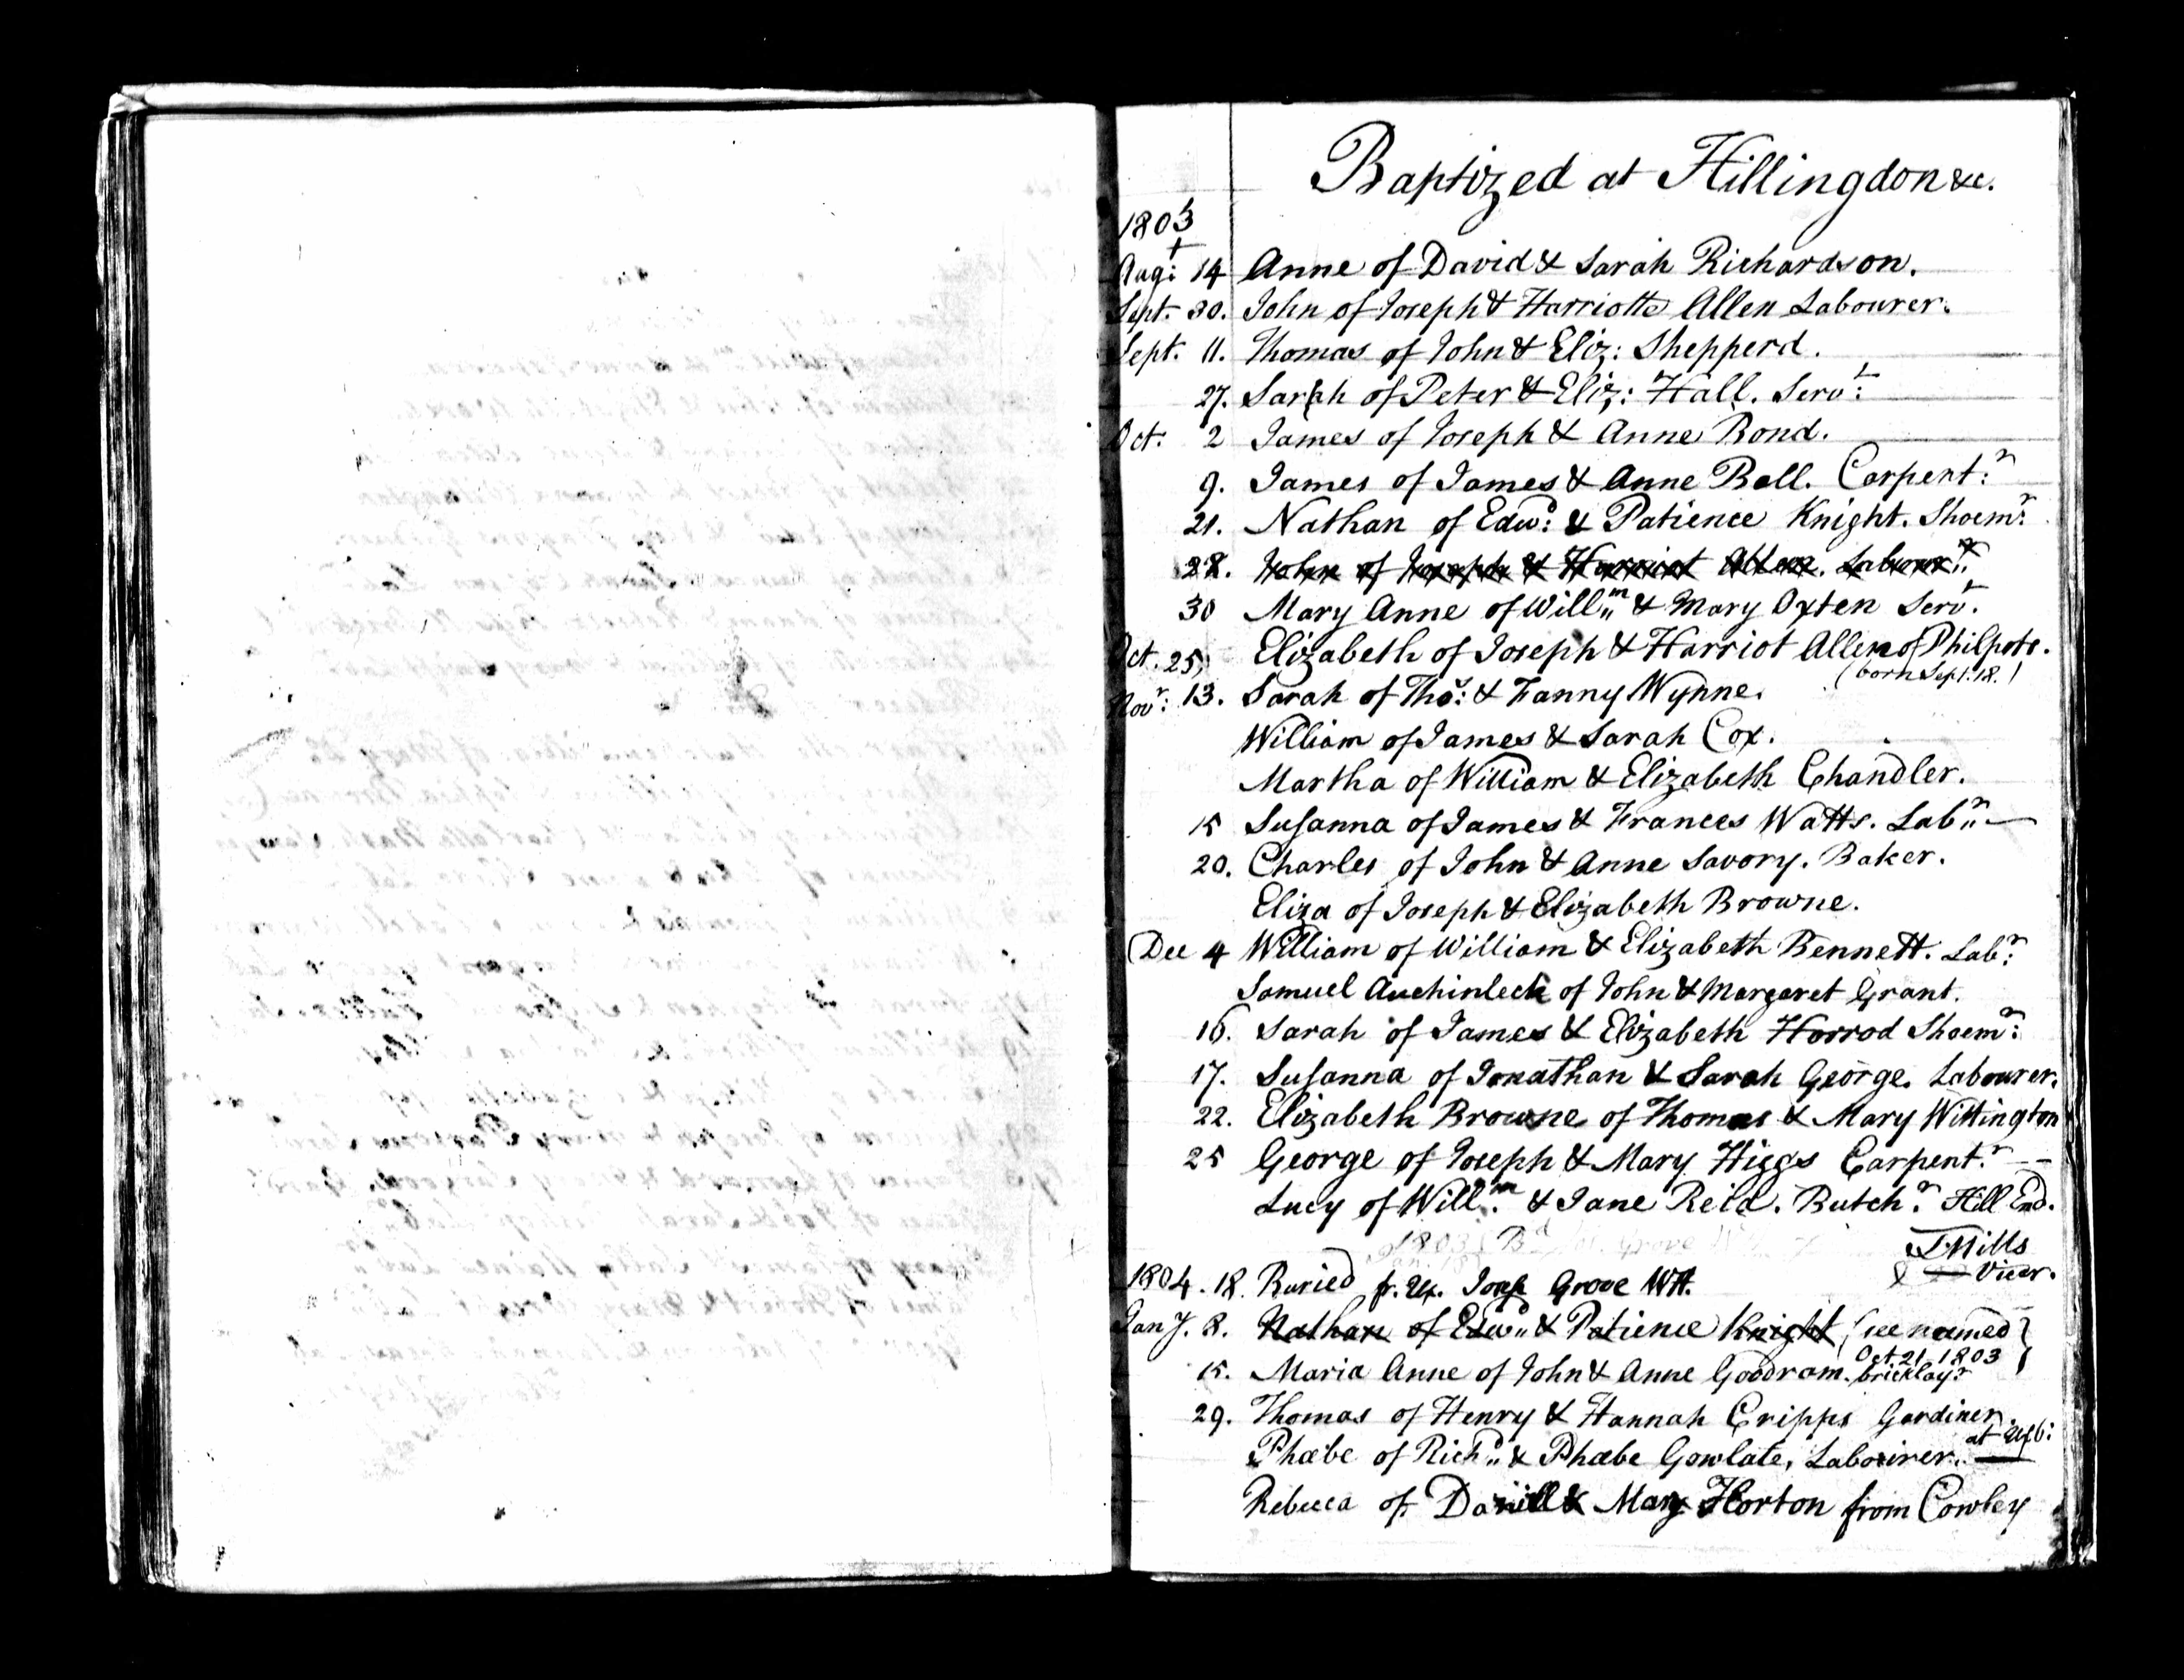 Baptized at Hillingdon &c.
1803
Aug: 14 Anne of David & Sarah Richardson.
Sept. 30. John of Joseph & Harriotte Allen Labourer.
Sept. 11. Thomas of John & Eliz: Shepperd.
27. Sarah of Peter & Eliz: Hall. Servt:
Oct. 2 James of Joseph & Anne Bond.
9. James of James & Anne Ball. Carpent:r
21. Nathan of Edwd: & Patience Knight. Shoemr:
28. John of Joseph & Harriot Allen. Labourr:
30 Mary Anne of Willm & Mary Oxten Servt.
Oct. 25, Elizabeth of Joseph & Harriot Allen of Philpots.
(born Sept. 18.)
Novr: 13. Sarah of Thos: & Fanny Wynne.
William of James & Sarah Cox.
Martha of William & Elizabeth Chandler.
15 Susanna of James & Frances Watts. Labr
20. Charles of John & Anne Savory. Baker.
Eliza of Joseph & Elizabeth Browne.
Dec 4 William of William & Elizabeth Bennett. Labr:
Samuel Auchinleck of John & Margaret Grant.
16. Sarah of James & Elizabeth Horrod Shoemr:
17. Susanna of Jonathan & Sarah George. Labourer.
22. Elizabeth Browne of Thomas & Mary Wittington
25 George of Joseph & Mary Higgs Carpent.r
Lucy of Willm. & Jane Reid. Butchr. Hill End.
T. Mills
Vicar.
1804. 18. Buried fr. Ux. Grove
Jany. 8. Nathan of Edwd & Patience Knight (see named
Oct. 21. 1803)
15. Maria Anne of John & Anne Goodram. bricklayr
29. Thomas of Henry & Hannah Cripps Gardiner.
at Uxb:
Phœbe of Richd & Phœbe Gowlate, Labourer.
Rebecca of Daniell & Mary Horton from Cowley